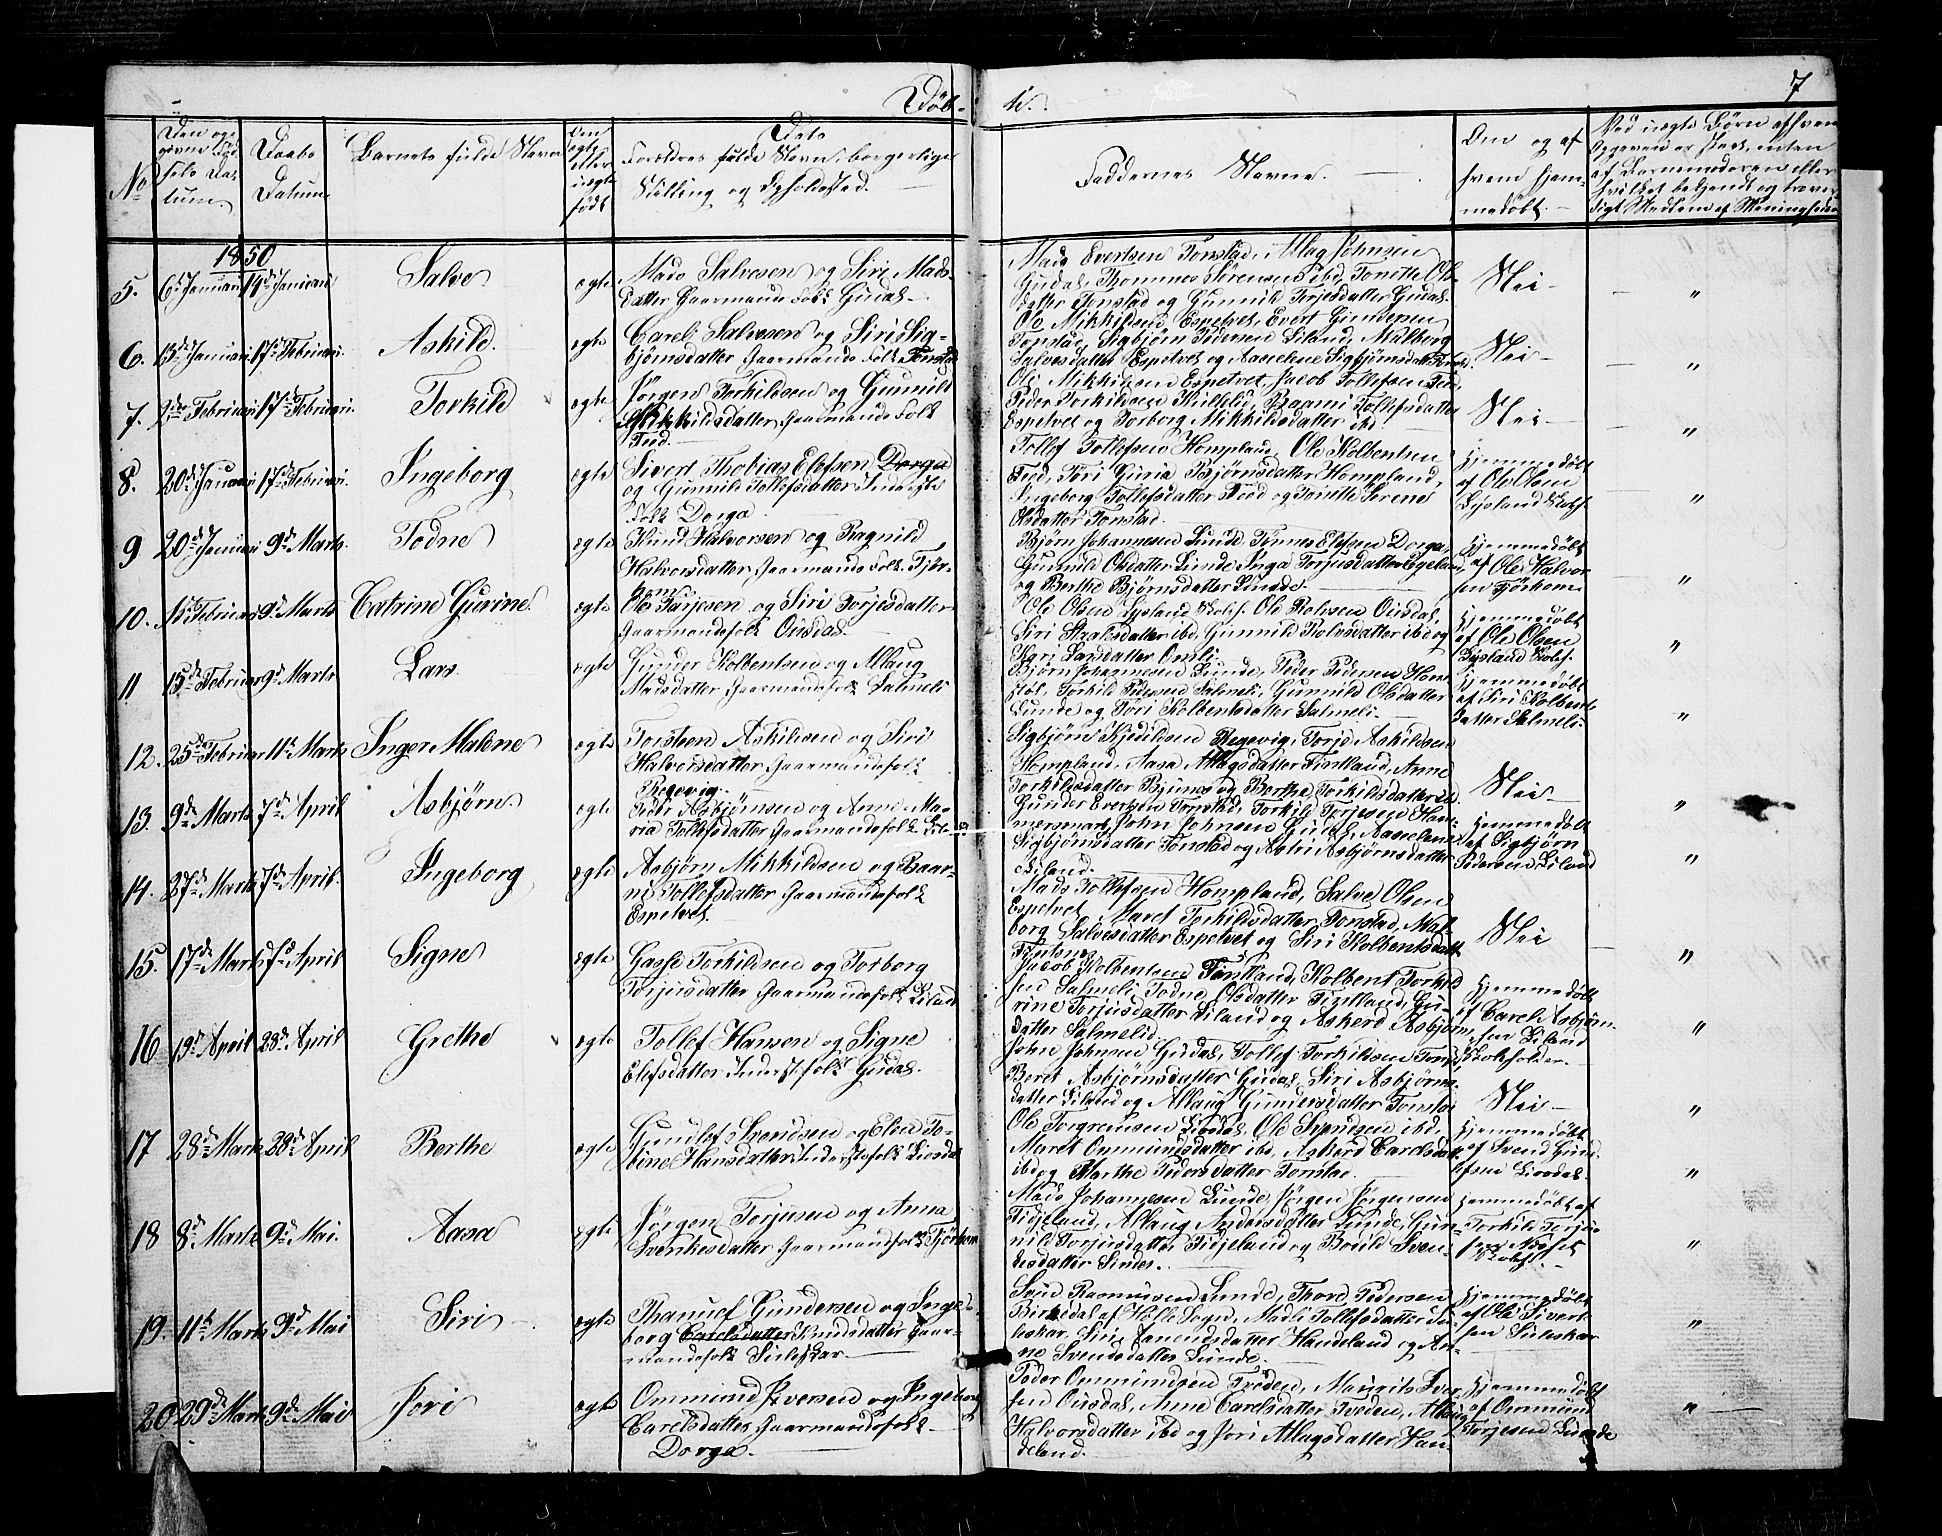 Døb-
te.
7
No
Den op-
givne Fød-
sels Da-
tum.
Daabs
Datum
Barnets fulde Navn
Om
ægte
eller
uægte
født
Dets
Forældres fulde Navn, borgerlige
Stilling og Opholdssted.
Faddernes Navne.
Om og af
hvem hjem-
medøbt.
Ved uægte Børn af hvem
Opgaven er skeet, enten
af Barnemoderen eller
hvilket bekjendt og trovær-
digt Medlem af Menigheden
1850
5. 6te Januari 14de Januari Salve ægte
Mads Salvesen og Siri Mads-
datter Gaarmands Folk Gudal
Mads Evertsen Tonstad, Allag Johnsen
Gudal, Thommes Sørensen ibd, Tonette Ols-
datter Tonstad og Gunnild Torjesdatter Gudal
Nei
"
6. 13de Januari 17de Februari Askild ægte
Careli Salvesen og Siri Sig-
bjørnsdatter Gaarmands Folk Tonstad
Ole Mikkildsen Espetvet, Evert Gundersen
Tonstad, Sigbjørn Pedersen Liland, Malborg
Salvesdatter Espetvet og Aaselene Sigbjørnsdatter
Nei
"
7. 2den Februari 17de Februari Torkild ægte
Jørgen Torkildsen og Gunnild
Mikkildsdatter Gaarmands Folk
Tud.
Ole Mikkildsen Espetvet, Jacob Tollefsen Tud,
Peder Torkildsen, Tollefsdatter
Espetvet og Torborg Mikkildsdatter ibd
Nei
"
8. 20de Januari 17de Februari Ingeborg ægte
Sivert Thobias Elefsen Dorga
og Gunnild Tollefsdatter Inderste
Folk Dorga
Tollef Tollefsen Hompland, Ole Kolbentsen
Tud, Guria Bjørnsdatter Hompland,
Ingeborg Tollefsdatter Tud og Tonette Serene
Olsdatter Tonstad.
Hjemmedøbt
af Ole Olsen
Lysland Kolsf.
"
9 20de Januari 9de Marts. Todne ægte
Knud Halvorsen og Ragnild
Halvorsdatter Gaarmands Folk Tjør-
hom
Bjørn Johannesen Lunde, Tønnes Elefsen Dorga,
Gunnild Olsdatter Lunde, Inga Torjusdatter Egeland
og Berthe Bjørnsdatter Lunde
Hjemmedøbt
af Ole Halvor-
sen Tjørhom
"
10. 1ste Februar 9de Marts Catrine Gurine. ægte
Ole Torjesen og Siri Torjesdatter
Gaarmandsfolk Ousdal
Ole Olsen Lysland Kolsf. Ole Rolvsen Ousdal,
Siri datter ibd, Gunnild Rolvsdatter ibd og
Kari Larsdatter Omli
Hjemmedøbt
af Ole Olsen
Lysland Kolsf.
"
11 15de Februar 9de Marts Lars ægte
Gunder Kolbentsen og Allaug
Madsdatter Gaarmandsfolk Salmeli
Bjørn Johannesen Lunde, Peder Pedersen
Torkild Pedersen Salmeli, Gunnild Olsdatter
Lunde og Tøri Kolbentsdatter Salmeli
Hjemmedøbt
af Siri Kolbents-
datter Salmeli
"
12. 25de Februar 11te Marts Inger Malene ægte
Torsteen Askildsen og Siri
Halvorsdatter Gaarmandsfolk
Regevig
Sigbjørn Kjetilsen Regevig, Torje Askildsen
Hompland, Aasa Allagsdatter Fintland, Anne
Torkildsdatter Bjunes og Berthe Torkildsdatter ibd.
Nei
"
13. 9de Marts 7de April Asbjørn ægte
Peder Asbjørnsen og Anne Ma-
ria Tollefsdatter Gaarmandsfolk Liland
Gunder Evertsen Tonstad, Torkild Torjesen Ham-
mersmark, John Johnsen Gudal, Aaselene
Sigbjørnsdatter Tonstad og Astri Asbjørnsdatter
Liland.
Hjemmedøbt
af Sigbjørn
Pedersen Liland
"
14. 27de Marts 7de April. Ingeborg ægte
Asbjørn Mikkildsen og Baar-
ni Tollefsdatter Gaarmandsfolk
Espetvet
Mads Tollefsen Hompland, Salve Olsen
Espetvet, Maret Torkildsdatter Tonstad, Mal-
borg Salvesdatter Espetvet og Siri Kolbentsdatter
Nei
"
15. 17de Marts 7de April Signe ægte
Gasse Torkildsen og Torborg
Torjusdatter Gaarmandsfolk Liland
Jacob Kolbentsen Fintland, Kolbent Torkild-
sen Salmeli, Todne Olsdatter Fintland, Gu-
rine Torjusdatter Liland og Askerd Asbjørns-
datter Salmeli
Hjemmedøbt
af Carel Asbjørn-
sen Liland
Skoleholder.
"
16 19de April 28de April Grethe ægte
Tollef Hansen og Signe
Elefsdatter Inderstefolk Gudal.
John Johnsen Gudal, Tollef Torkildsen
Beret Asbjørnsdatter Gudal, Siri Asbjørns-
datter Liland og Allaug Gundersdatter Tonstad
Nei
"
17 28de Marts 28de April Berthe ægte
Gundlef Svendsen og Elen To-
bine Hansdatter Inderstefolk Liosdal
Ole Torgremsen Liosdal, Ole Svendsen ibd,
Maret Ommundsdatter ibd, Askerd Carelsdatter
ibd og Marthe Pedersdatter Tonstad
Hjemmedøbt
af Svend Gund-
lefsen Liosdal
"
18 8de Marts 9de Mai. Aasa ægte
Jørgen Torjusen og Anna
Svenkesdatter Gaarmandsfolk Tjørhom
Mads Johannesen Lunde, Jørgen Jørgensen
Fidjeland, Allaug Andersdatter Lunde, Gun-
nild Torjusdatter Fidjeland og Bodild Sven-
kesdatter Sinnes.
Hjemmedøbt af
Torkild Torju-
sen
Kolsf.
"
19. 11te Marts 9de Mai Siri ægte
Thanuef Gundersen og Inge-
borg Carelsdatter Knudsdatter Gaar-
mandsfolk Sirleskar
Rasmussen Lunde, Thore Pedersen
Birkedal af Helle Sogn, Madli Tollefsdatter Si-
leskar, Siri Aanendsdatter Haudeland og An-
ne Svendsdatter Lunde.
Hjemmedøbt
af Ole Sivert-
sen Sirleskar
"
20 29de Marts 9de Mai Jori ægte
Ommund Iversen og Ingeborg
Carelsdatter Gaarmandsfolk
Dorga.
Peder Ommundsen Tveden, Maurits Iver-
sen Ousdal, Anne Carelsdatter Tveden, Allaug
Halvorsdatter ibd og Jori Allagsdatter Hau-
deland.
Hjemmedøbt
af Ommund
Torjesen
"